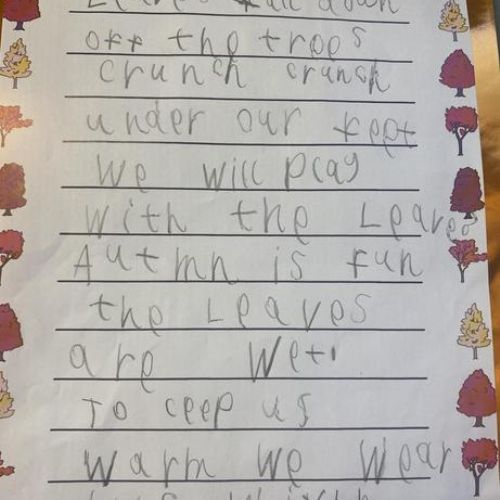 Leaves fall down
off the trees
crunch crunch
under our feet
We will play
with the Leaves
Autmn is fun
the Leaves
are wet.
To ceep us
warm we wear